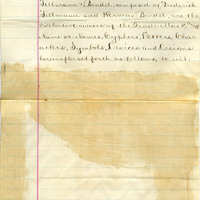 Tillmann & Bendel, composed of Frederick
Tillmann and Herman Bendel, are the
exclusive owners of the Trade Mark and
Name or Names, Cyphers, Letters, Char
acters, Symbols, Devices and Designs
hereinafter set forth as follows, to wit.